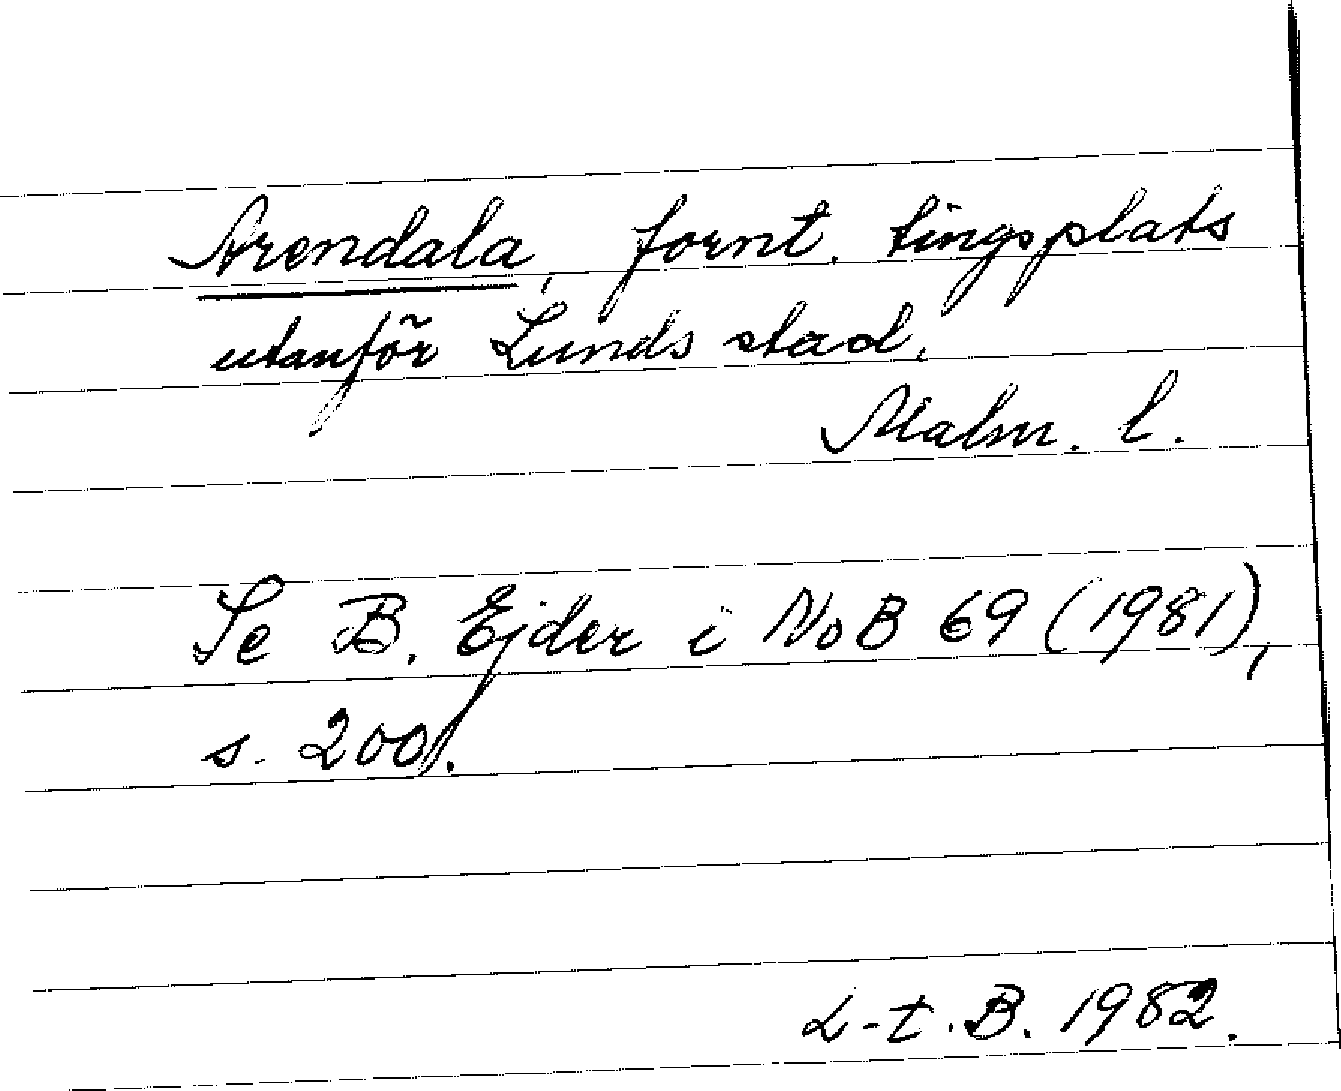 Arendala, fornt. tingsplats
utanför Lunds stad.
Malm. l.
Se B. Ejder i NoB 69 (1981),
s. 200f.
L-t. B. 1982.